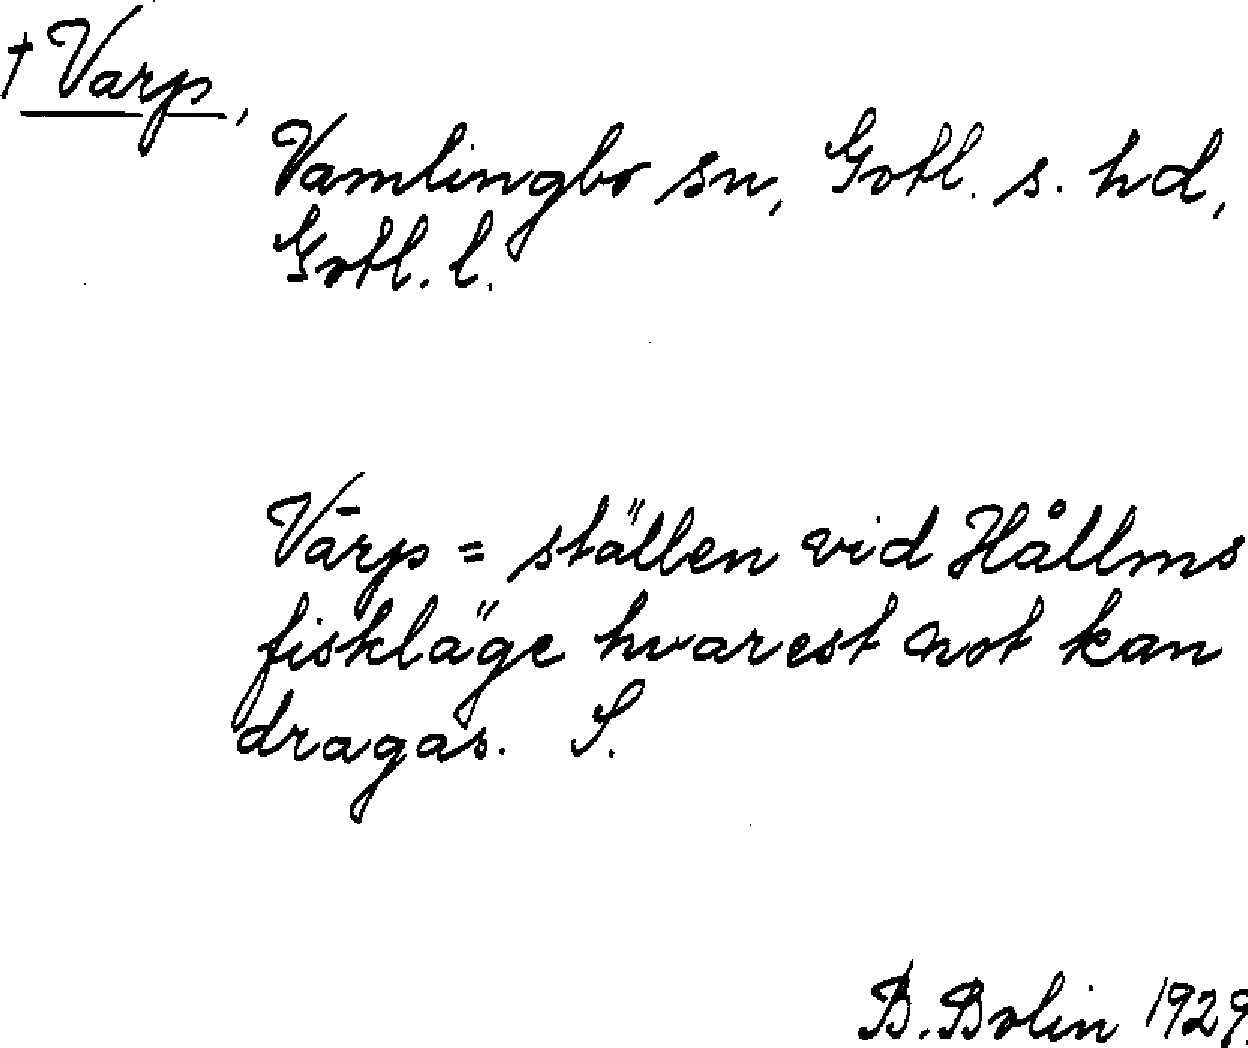 † Varp,
Vamlingbo sn, Gotl. s. hd,
Gotl. l.
Vārp = ställen vid Hållms
fiskläge hvarest not kan
dragas. S.
B. Bolin 1929.